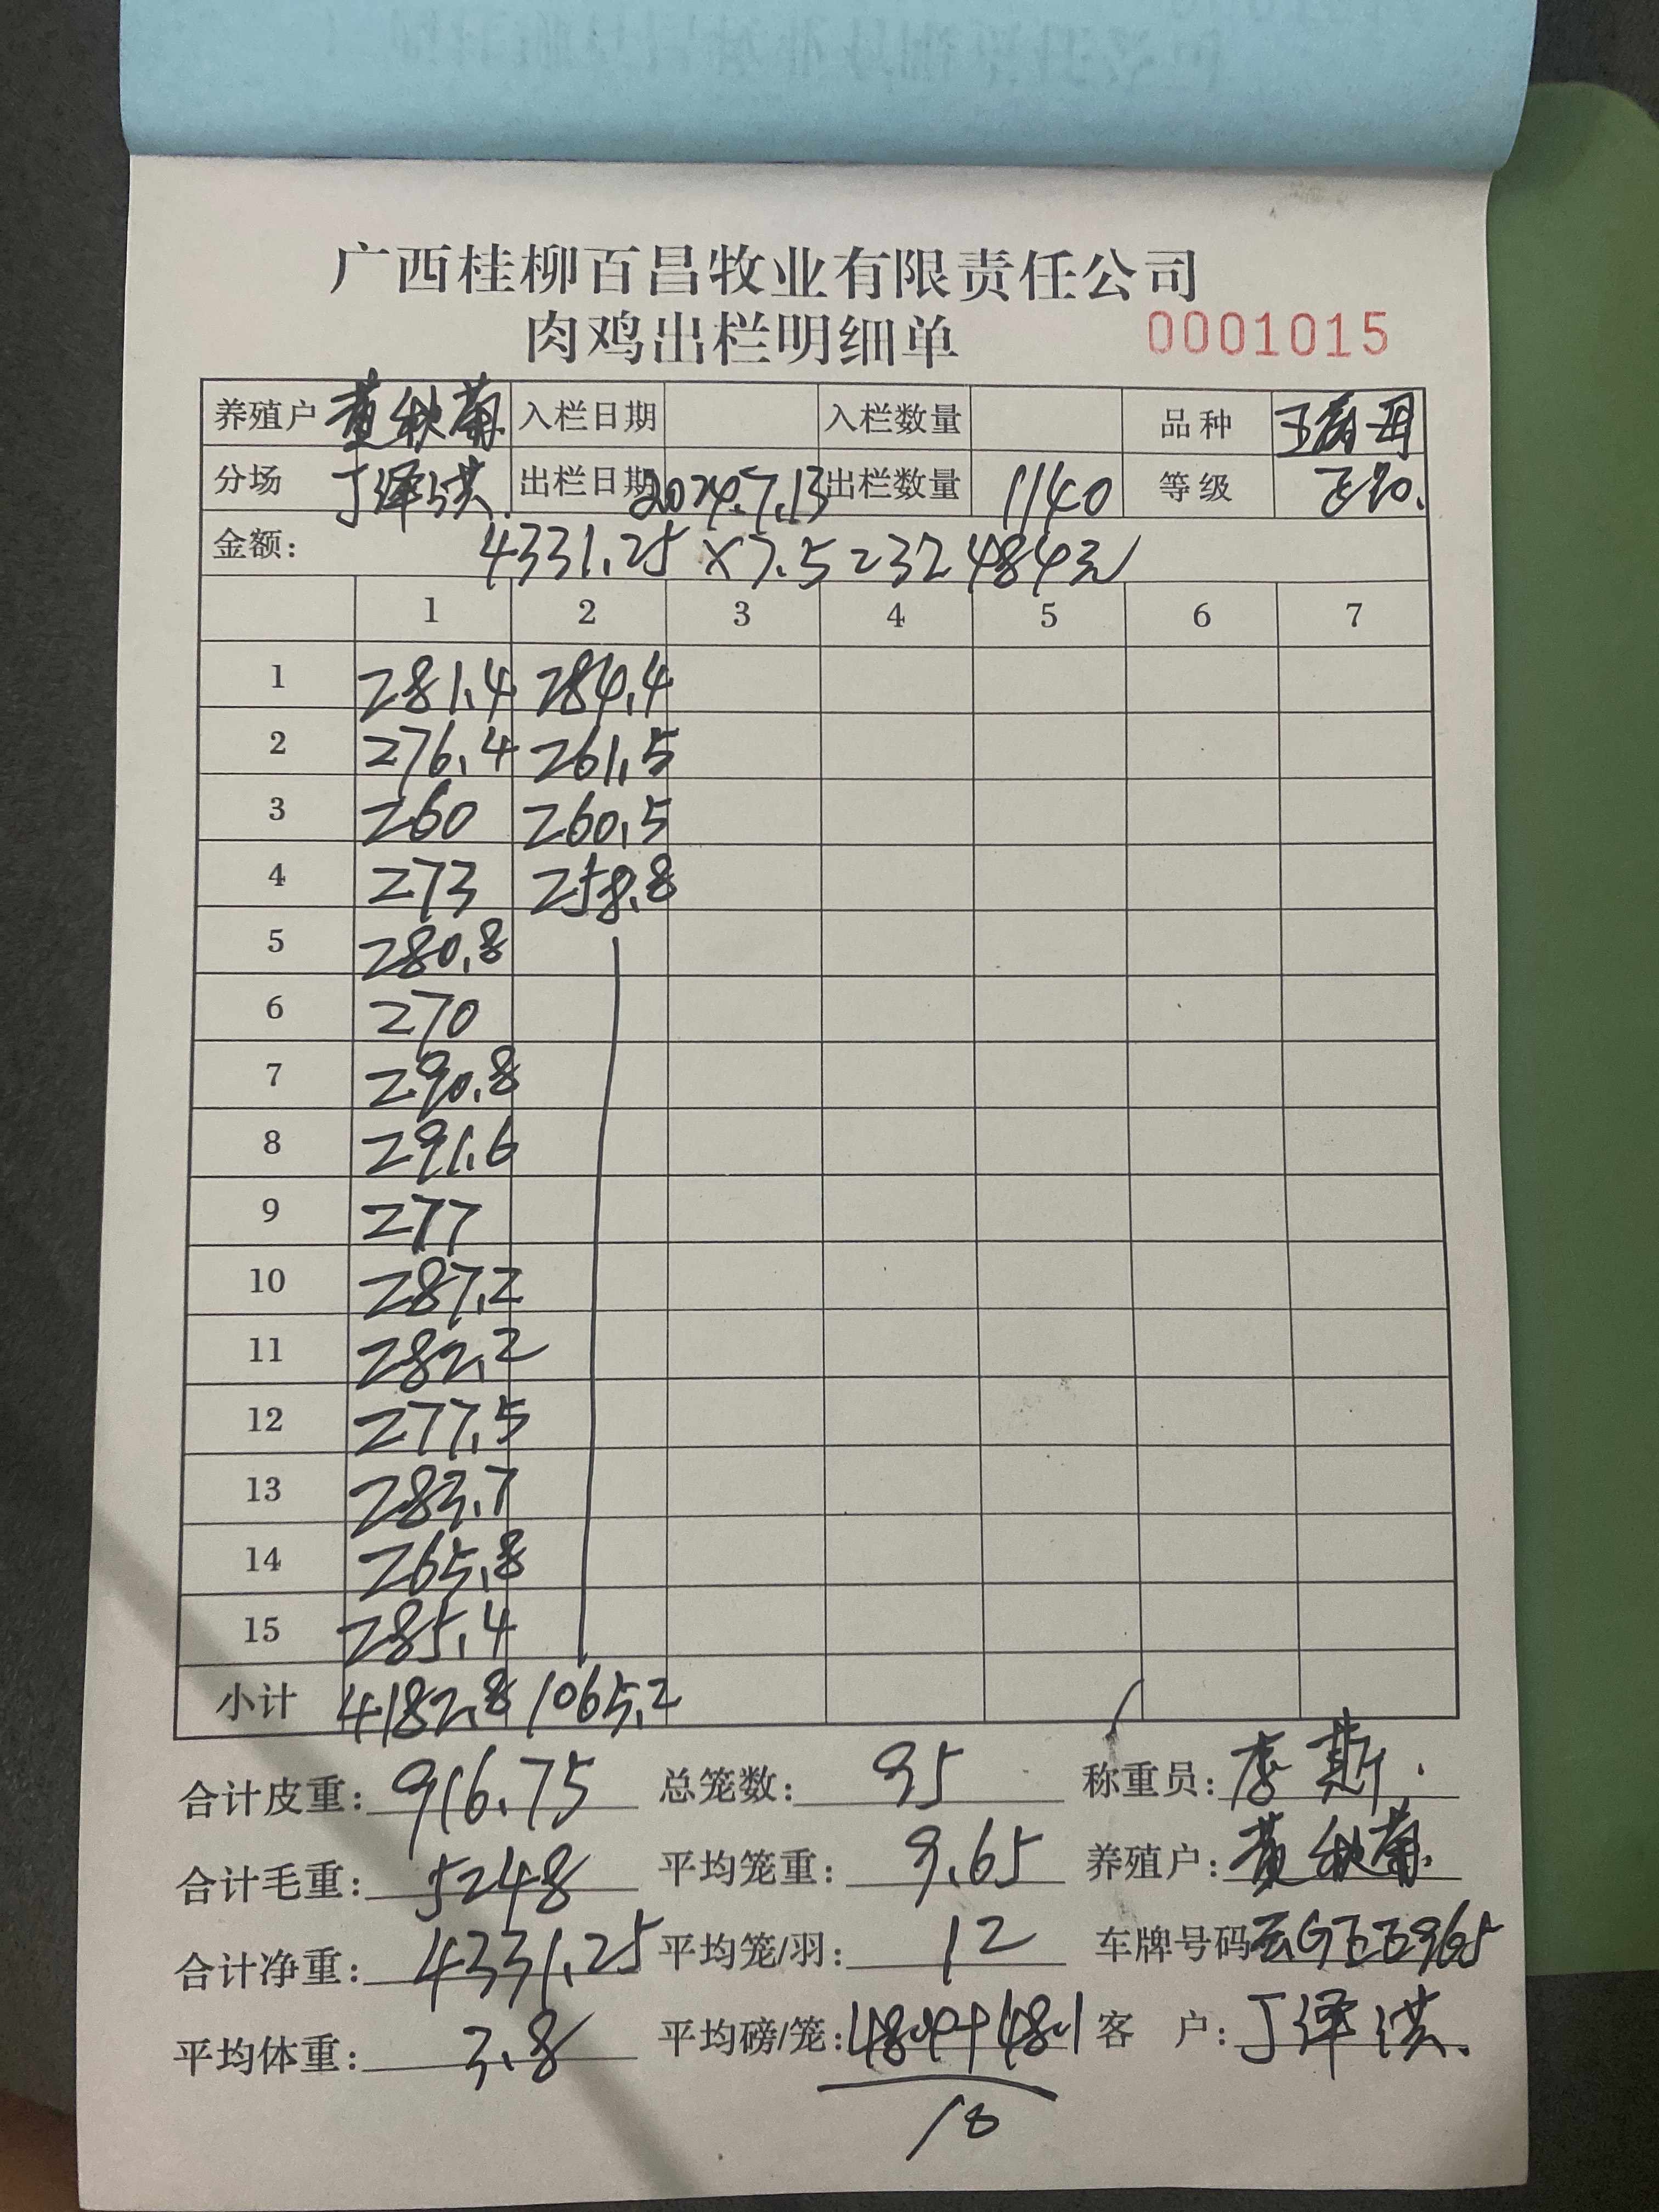 广西桂柳百昌牧业有限责任公司
肉鸡出栏明细单 0001015
养殖户 黄秋菊 入栏日期 入栏数量 品种
分场 丁泽洪. 出栏日期 2024.7.13 出栏数量 1140 等级
金额: 4331.25×7.5=32484元
1 2 3 4 5 6 7
1 281.4 284.4
2 276.4 261.5
3 260 260.5
4 273 258.8
5 280.8
6 270
7 290.8
8 291.6
9 277
10 287.2
11 282.2
12 277.5
13 283.7
14 265.8
15 285.4
小计 4182.8 1065.2
合计皮重: 916.75 总笼数: 95 称重员: 李斯.
合计毛重: 5248 平均笼重: 9.65 养殖户: 黄秋菊.
合计净重: 4331.25 平均笼/羽: 12 车牌号码
平均体重: 3.8 平均磅/笼: 客 户: 丁泽洪.
18